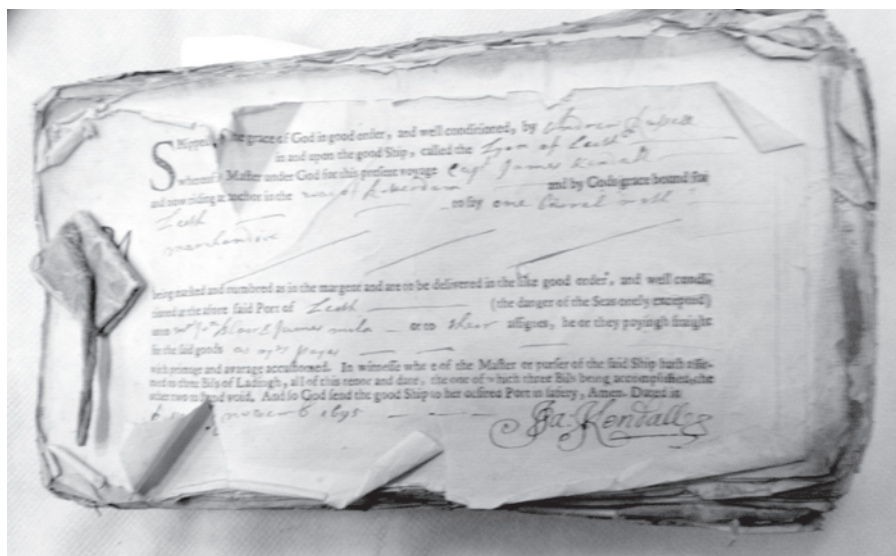 SHipped, the grace of God in good order, and well conditioned, by Andrew Russell
in and upon the good Ship, called the Lyon of Leath
whereof is Master under God for this present voyage Capt James Kendall
and now riding at anchor in the of Roterdam and by Gods grace bound for
Leath to say one Barrel with
marchandise
being marked and numbred as in the margent and are to be delivered in the like good order, and well condi-
tioned at the afore said Port of Leath (the danger of the Seas onely excepted)
unto James or to their assignes, he or they payingh fraight
for the said goods
with primage and avarage accustomed. In witnesse whe e of the Master or purser of the said Ship hath affir-
med to three Bils of Ladingh, all of this tenor and date, the one of which three Bils being accomplished, the
other two to stand void. And so God send the good Ship to her desired Port in safety, Amen. Dated in
novemb 1695
Ja: Kendall